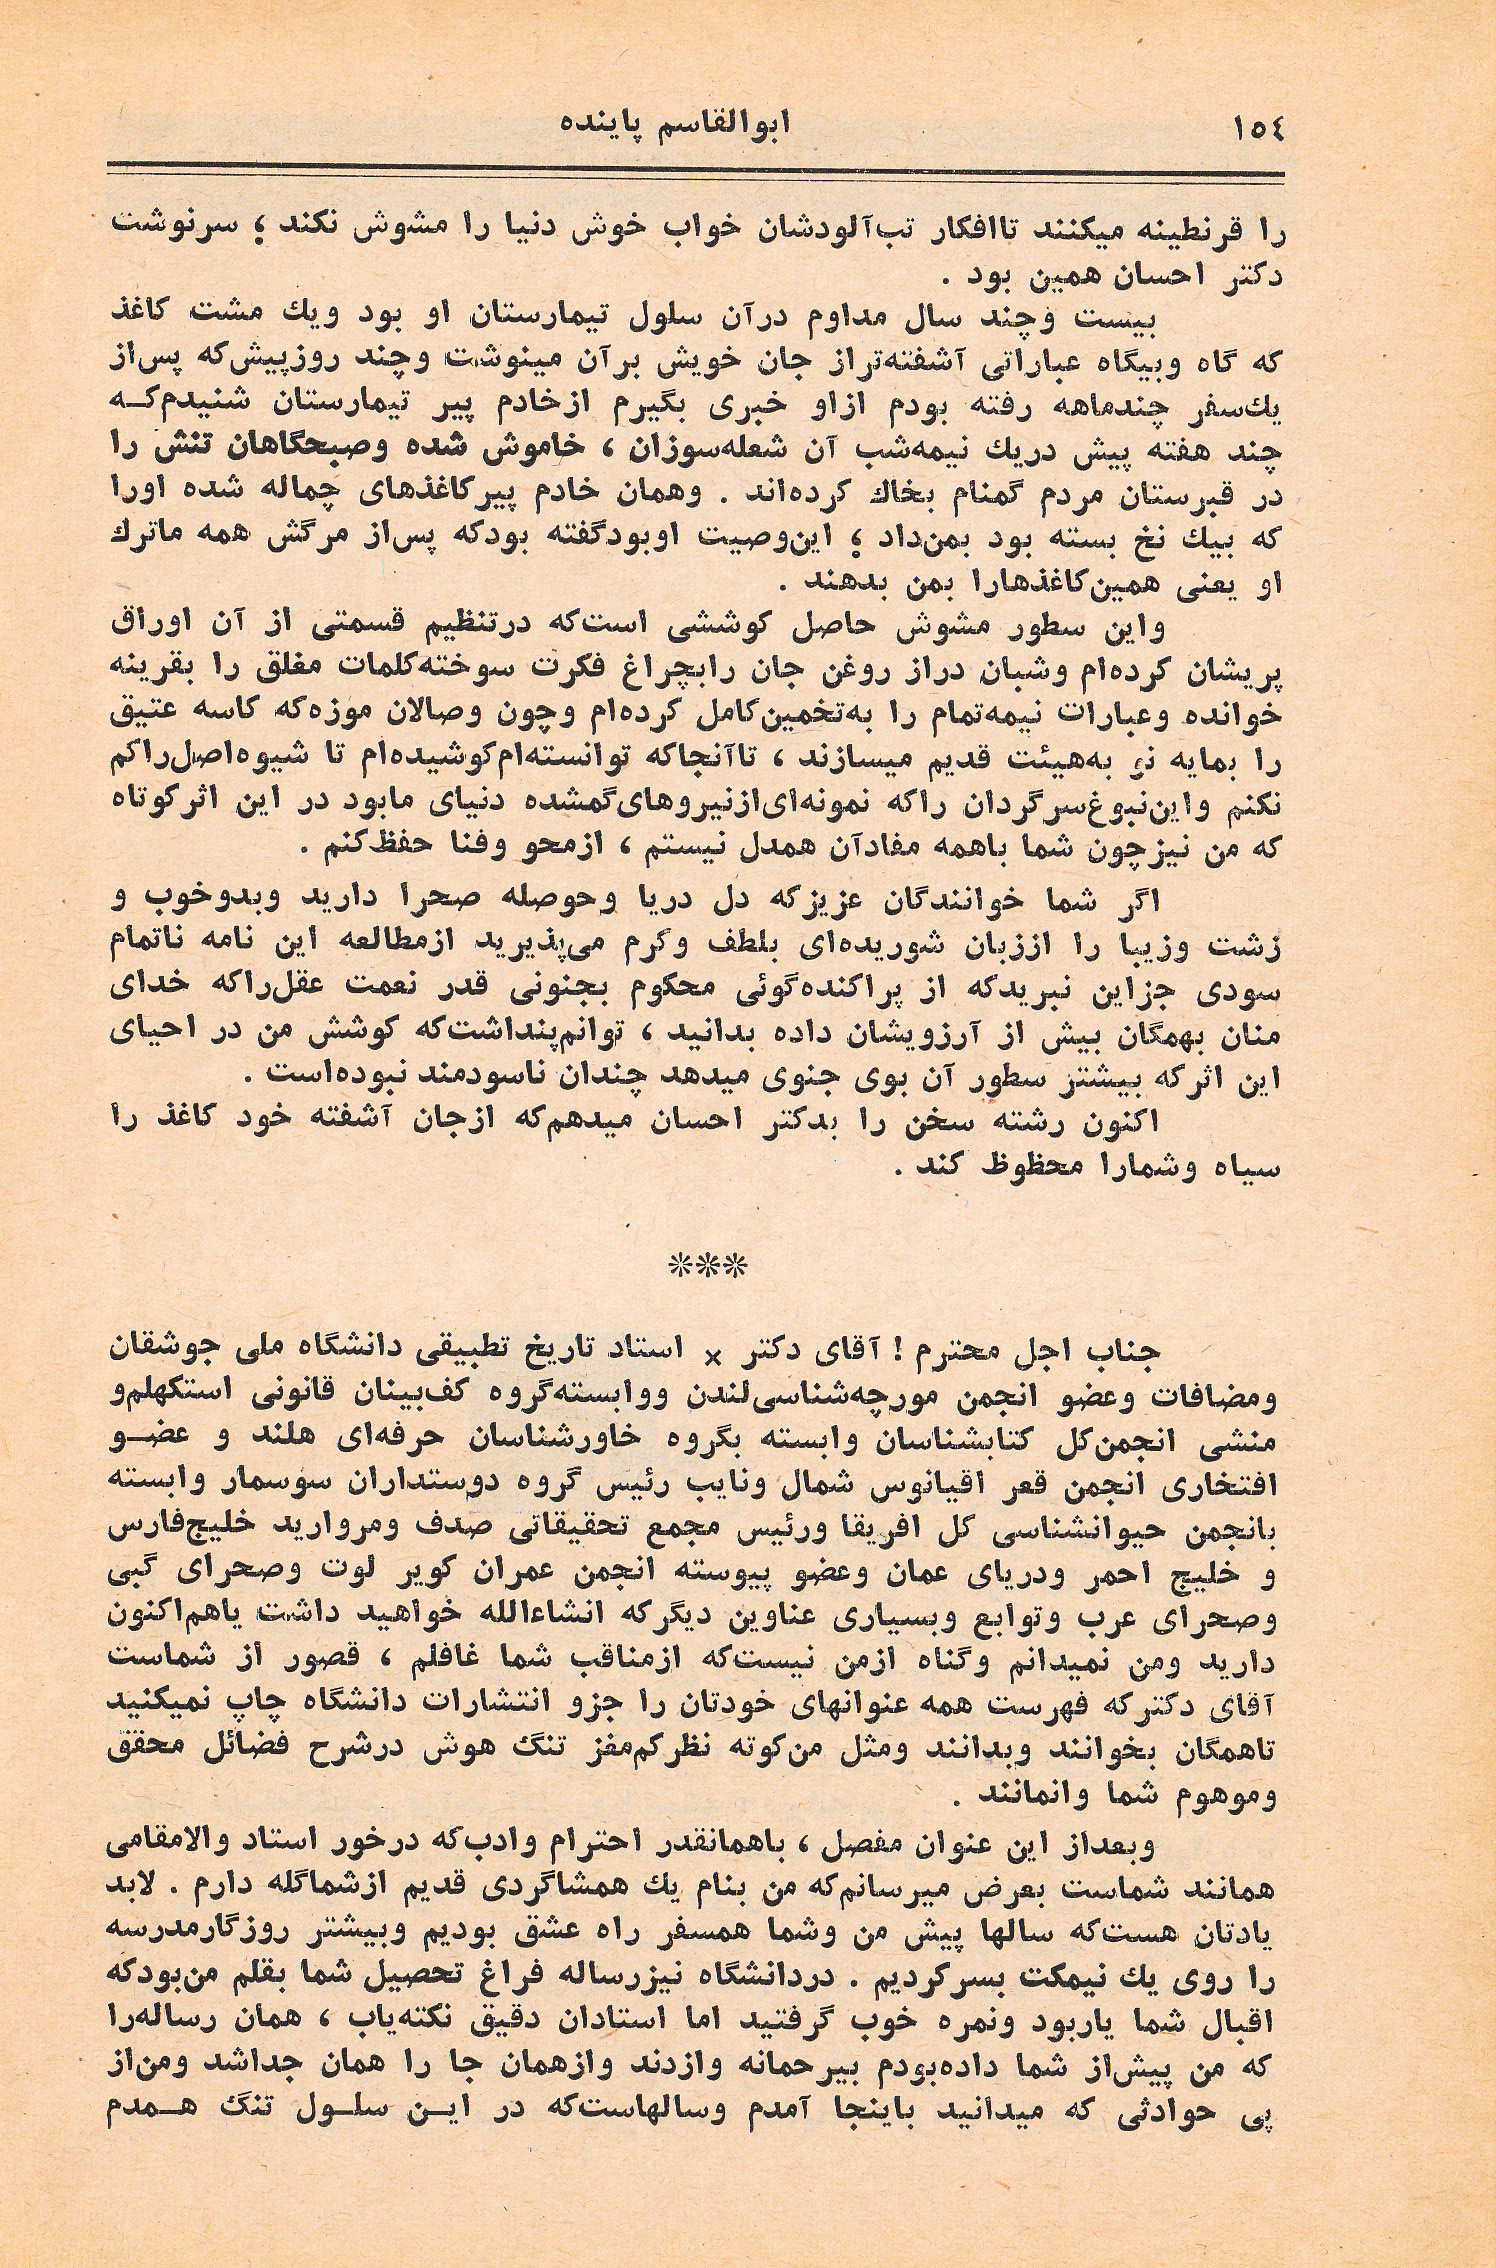 ١٥٤
ابوالقاسم پاینده
را قرنطینه میکنند تاافکار تب‌آلودشان خواب خوش دنیا را مشوش نکند ؛ سرنوشت
دکتر احسان همین بود .
بیست وچند سال مداوم درآن سلول تیمارستان او بود ویك مشت کاغذ
که گاه وبیگاه عباراتی آشفته‌تراز جان خویش برآن مینوشت وچند روزپیش‌که پس‌از
یك‌سفر چندماهه رفته بودم ازاو خبری بگیرم ازخادم پیر تیمارستان شنیدم‌کـه
چند هفته پیش دریك نیمه‌شب آن شعله‌سوزان ، خاموش شده وصبحگاهان تنش را
در قبرستان مردم گمنام بخاك کرده‌اند . وهمان خادم پیرکاغذهای چماله شده اورا
که بیك نخ بسته بود بمن‌داد ؛ این‌وصیت اوبودگفته بودکه پس‌از مرگش همه ماترك
او یعنی همین‌کاغذهارا بمن بدهند .
واین سطور مشوش حاصل کوششی است‌که درتنظیم قسمتی از آن اوراق
پریشان کرده‌ام وشبان دراز روغن جان رابچراغ فکرت سوخته‌کلمات مغلق را بقرینه
خوانده وعبارات نیمه‌تمام را به‌تخمین‌کامل کرده‌ام وچون وصالان موزه‌که کاسه عتیق
را بمایه نو به‌هیئت قدیم میسازند ، تاآنجاکه توانسته‌ام‌کوشیده‌ام تا شیوه‌اصل‌راکم
نکنم واین‌نبوغ‌سرگردان راکه نمونه‌ای‌ازنیروهای‌گمشده دنیای مابود در این اثرکوتاه
که من نیزچون شما باهمه مفادآن همدل نیستم ، ازمحو وفنا حفظ‌کنم .
اگر شما خوانندگان عزیزکه دل دریا وحوصله صحرا دارید وبدوخوب و
زشت وزیبا را اززبان شوریده‌ای بلطف وکرم می‌پذیرید ازمطالعه این نامه ناتمام
سودی جزاین نبریدکه از پراکنده‌گوئی محکوم بجنونی قدر نعمت عقل‌راکه خدای
منان بهمگان بیش از آرزویشان داده بدانید ، توانم‌پنداشت‌که کوشش من در احیای
این اثرکه بیشتر سطور آن بوی جنوی میدهد چندان ناسودمند نبوده‌است .
اکنون رشته سخن را بدکتر احسان میدهم‌که ازجان آشفته خود کاغذ را
سیاه وشمارا محظوظ کند .
***
جناب اجل محترم ! آقای دکتر × استاد تاریخ تطبیقی دانشگاه ملی جوشقان
ومضافات وعضو انجمن مورچه‌شناسی‌لندن ووابسته‌گروه کف‌بینان قانونی استکهلم‌و
منشی انجمن‌کل کتابشناسان وابسته بگروه خاورشناسان حرفه‌ای هلند و عضـو
افتخاری انجمن قعر اقیانوس شمال ونایب رئیس گروه دوستداران سوسمار وابسته
بانجمن حیوانشناسی کل افریقا ورئیس مجمع تحقیقاتی صدف ومروارید خلیج‌فارس
و خلیج احمر ودریای عمان وعضو پیوسته انجمن عمران کویر لوت وصحرای گبی
وصحرای عرب وتوابع وبسیاری عناوین دیگرکه انشاءالله خواهید داشت یاهم‌اکنون
دارید ومن نمیدانم وگناه ازمن نیست‌که ازمناقب شما غافلم ، قصور از شماست
آقای دکترکه فهرست همه عنوانهای خودتان را جزو انتشارات دانشگاه چاپ نمیکنید
تاهمگان بخوانند وبدانند ومثل من‌کوته نظرکم‌مغز تنگ هوش درشرح فضائل محقق
وموهوم شما وانمانند .
وبعداز این عنوان مفصل ، باهمانقدر احترام وادب‌که درخور استاد والامقامی
همانند شماست بعرض میرسانم‌که من بنام یك همشاگردی قدیم ازشماگله دارم . لابد
یادتان هست‌که سالها پیش من وشما همسفر راه عشق بودیم وبیشتر روزگارمدرسه
را روی یك نیمکت بسرکردیم . دردانشگاه نیزرساله فراغ تحصیل شما بقلم من‌بودکه
اقبال شما یاربود ونمره خوب گرفتید اما استادان دقیق نکته‌یاب ، همان رساله‌را
که من پیش‌از شما داده‌بودم بیرحمانه وازدند وازهمان جا را همان جداشد ومن‌از
پی حوادثی که میدانید باینجا آمدم وسالهاست‌که در ایـن سلـول تنگ هـمدم